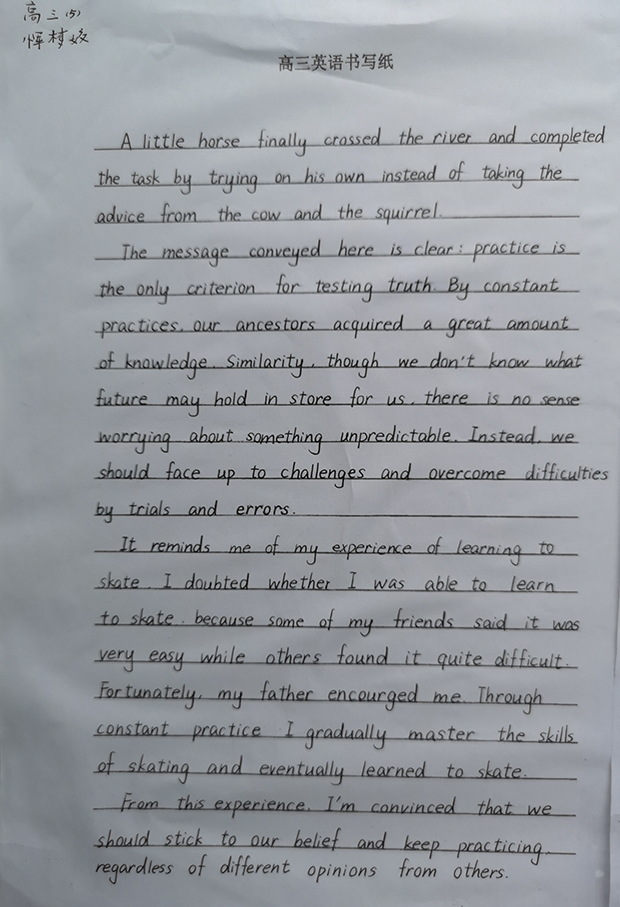 高三(5)
恽梦姣
高三英语书写纸
A little horse finally crossed the river and completed
the task by trying on his own instead of taking the
advice from the cow and the squirrel.
The message conveyed here is clear: practice is
the only criterion for testing truth. By constant
practices, our ancestors acquired a great amount
of knowledge. Similarity, though we don't know what
future may hold in store for us, there is no sense
worrying about something unpredictable. Instead, we
should face up to challenges and overcome difficulties
by trials and errors.
It reminds me of my experience of learning to
skate. I doubted whether I was able to learn
to skate, because some of my friends said it was
very easy while others found it quite difficult.
Fortunately, my father encourged me. Through
constant practice I gradually master the skills
of skating and eventually learned to skate.
From this experience, I'm convinced that we
should stick to our belief and keep practicing,
regardless of different opinions from others.